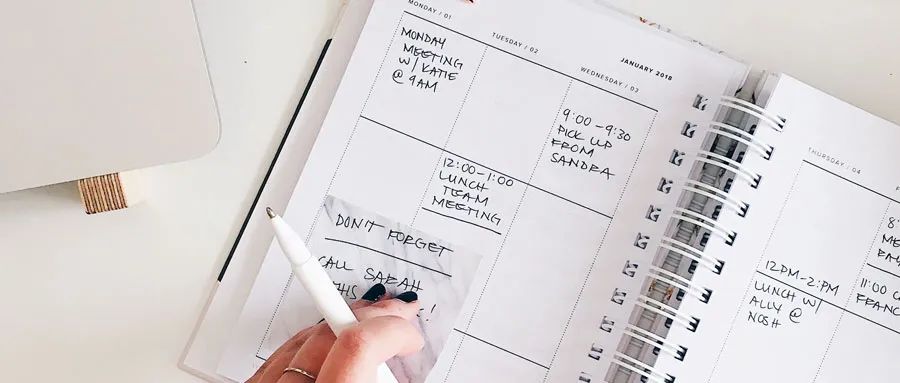 MONDAY / 01
TUESDAY / 02
JANUARY 2018
WEDNESDAY / 03
MONDAY
MEETING
W/ KATIE
@ 9AM
12:00-1:00
LUNCH
TEAM
MEETING
9:00-9:30
PICK UP
FROM
SANDRA
DON'T FORGET
CALL SARAH
THIS
!
THURSDAY / 04
12PM-2PM
LUNCH W/
ALLY @
NOSH
11:00